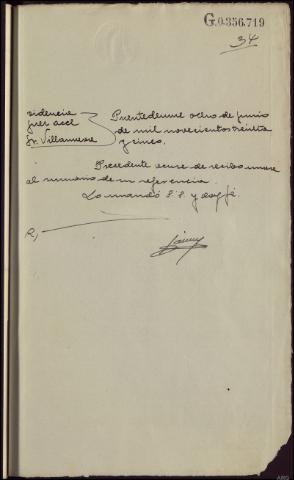 G.0.356.719
34
videncia
Juez accl
Sr. Villanueva
Puentedeume ocho de junio
de mil novecientos treinta
y cinco.
Precedente acuse de recibo unase
al sumario de su referencia.
Lo mandó S.S. y doy fé.
R/